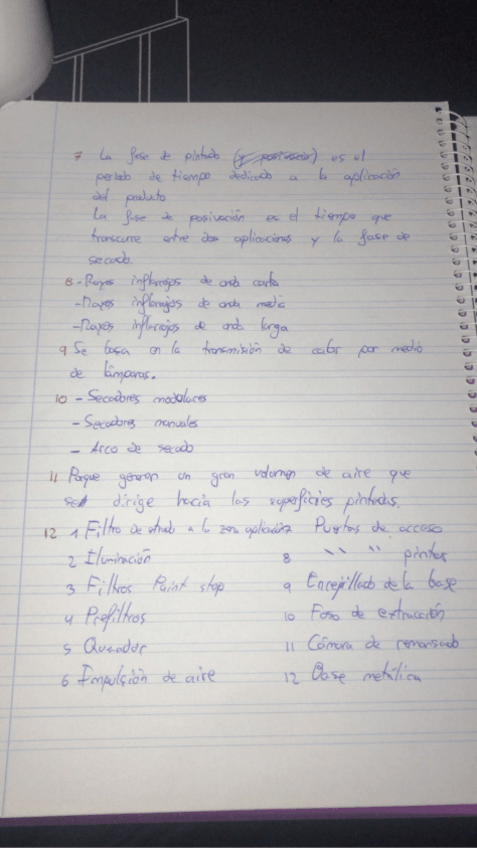 7 La fase de pintado (y pasivación) es el
periodo de tiempo dedicado a la aplicación
del producto
La fase de pasivación es el tiempo que
transcurre entre dos aplicaciones y la fase de
secado.
8 - Rayos inflarojos de onda corta
- Rayos inflarojos de onda media
- Rayos inflarojos de onda larga
9 Se basa en la transmisión de calor por medio
de lámparas.
10 - Secadores modulares
- Secadores manuales
- Arco de secado
11 Porque generan un gran volumen de aire que
se dirige hacia las superficies pintadas.
12 1 Filtro de a la zona aplicación
2 Iluminación
3 Filtros Paint stop
4 Prefiltros
5 Quemador
6 Impulsión de aire
Puertas de acceso
8 " " pintor
9 de la base
10 Foso de extracción
11 Cámara de remansado
12 Base metálica